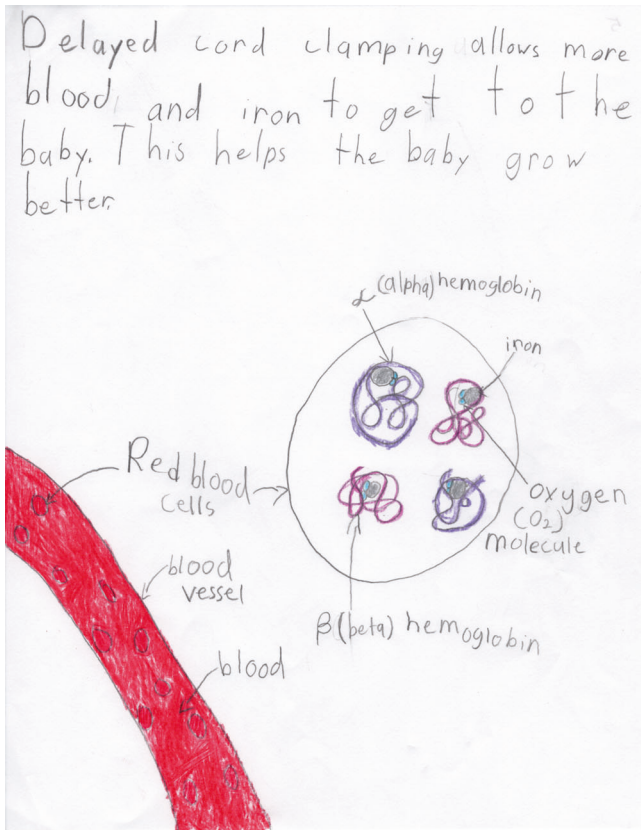 Delayed cord clamping allows more
blood and iron to get to the
baby. This helps the baby grow
better.
α (alpha) hemoglobin
iron
Red blood
cells
oxygen
(O2)
molecule
blood
vessel
β (beta) hemoglobin
blood